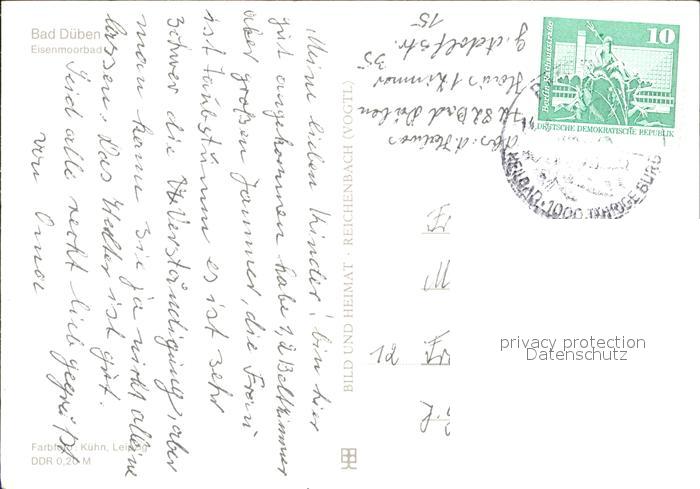 Bad Düben
Eisenmoorbad
Meine lieben Kinder! bin hier
gut angekommen habe 1, 2 Bettzimmer
aber großen Jammer, die Frau
ist taubstumm es ist sehr
schwer die Verständigung, aber
man kann sie ja nicht alleine
lassen. Das Wetter ist gut.
Seid alle recht lieb gegrüßt
von Oma
Farbfoto: Kühn, Leipzig
DDR 0,20 M
BILD UND HEIMAT · REICHENBACH (VOGTL)
Abs:
7282 Bad Düben
Haus 1 Zimmer
35
G. Adolfstr.
15
10
DEUTSCHE DEMOKRATISCHE REPUBLIK
HEILBAD · 1000 JÄHRIGE BURG
21
privacy protection
Datenschutz